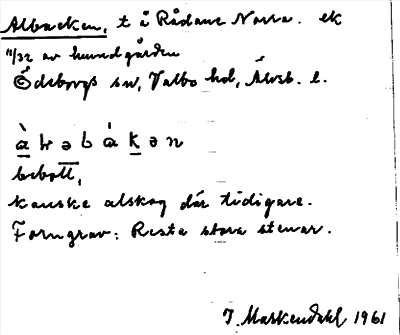 Albacken, t å Rådane Norra. ek
11/32 av hemmdgården
Ödeborgs sn, Valbo hd, Älvsb. l.
à l ə b á k ə n
bebott,
kanske alskog där tidigare.
Forngrav: Resta stora stenar.
J Maskendahl 1961